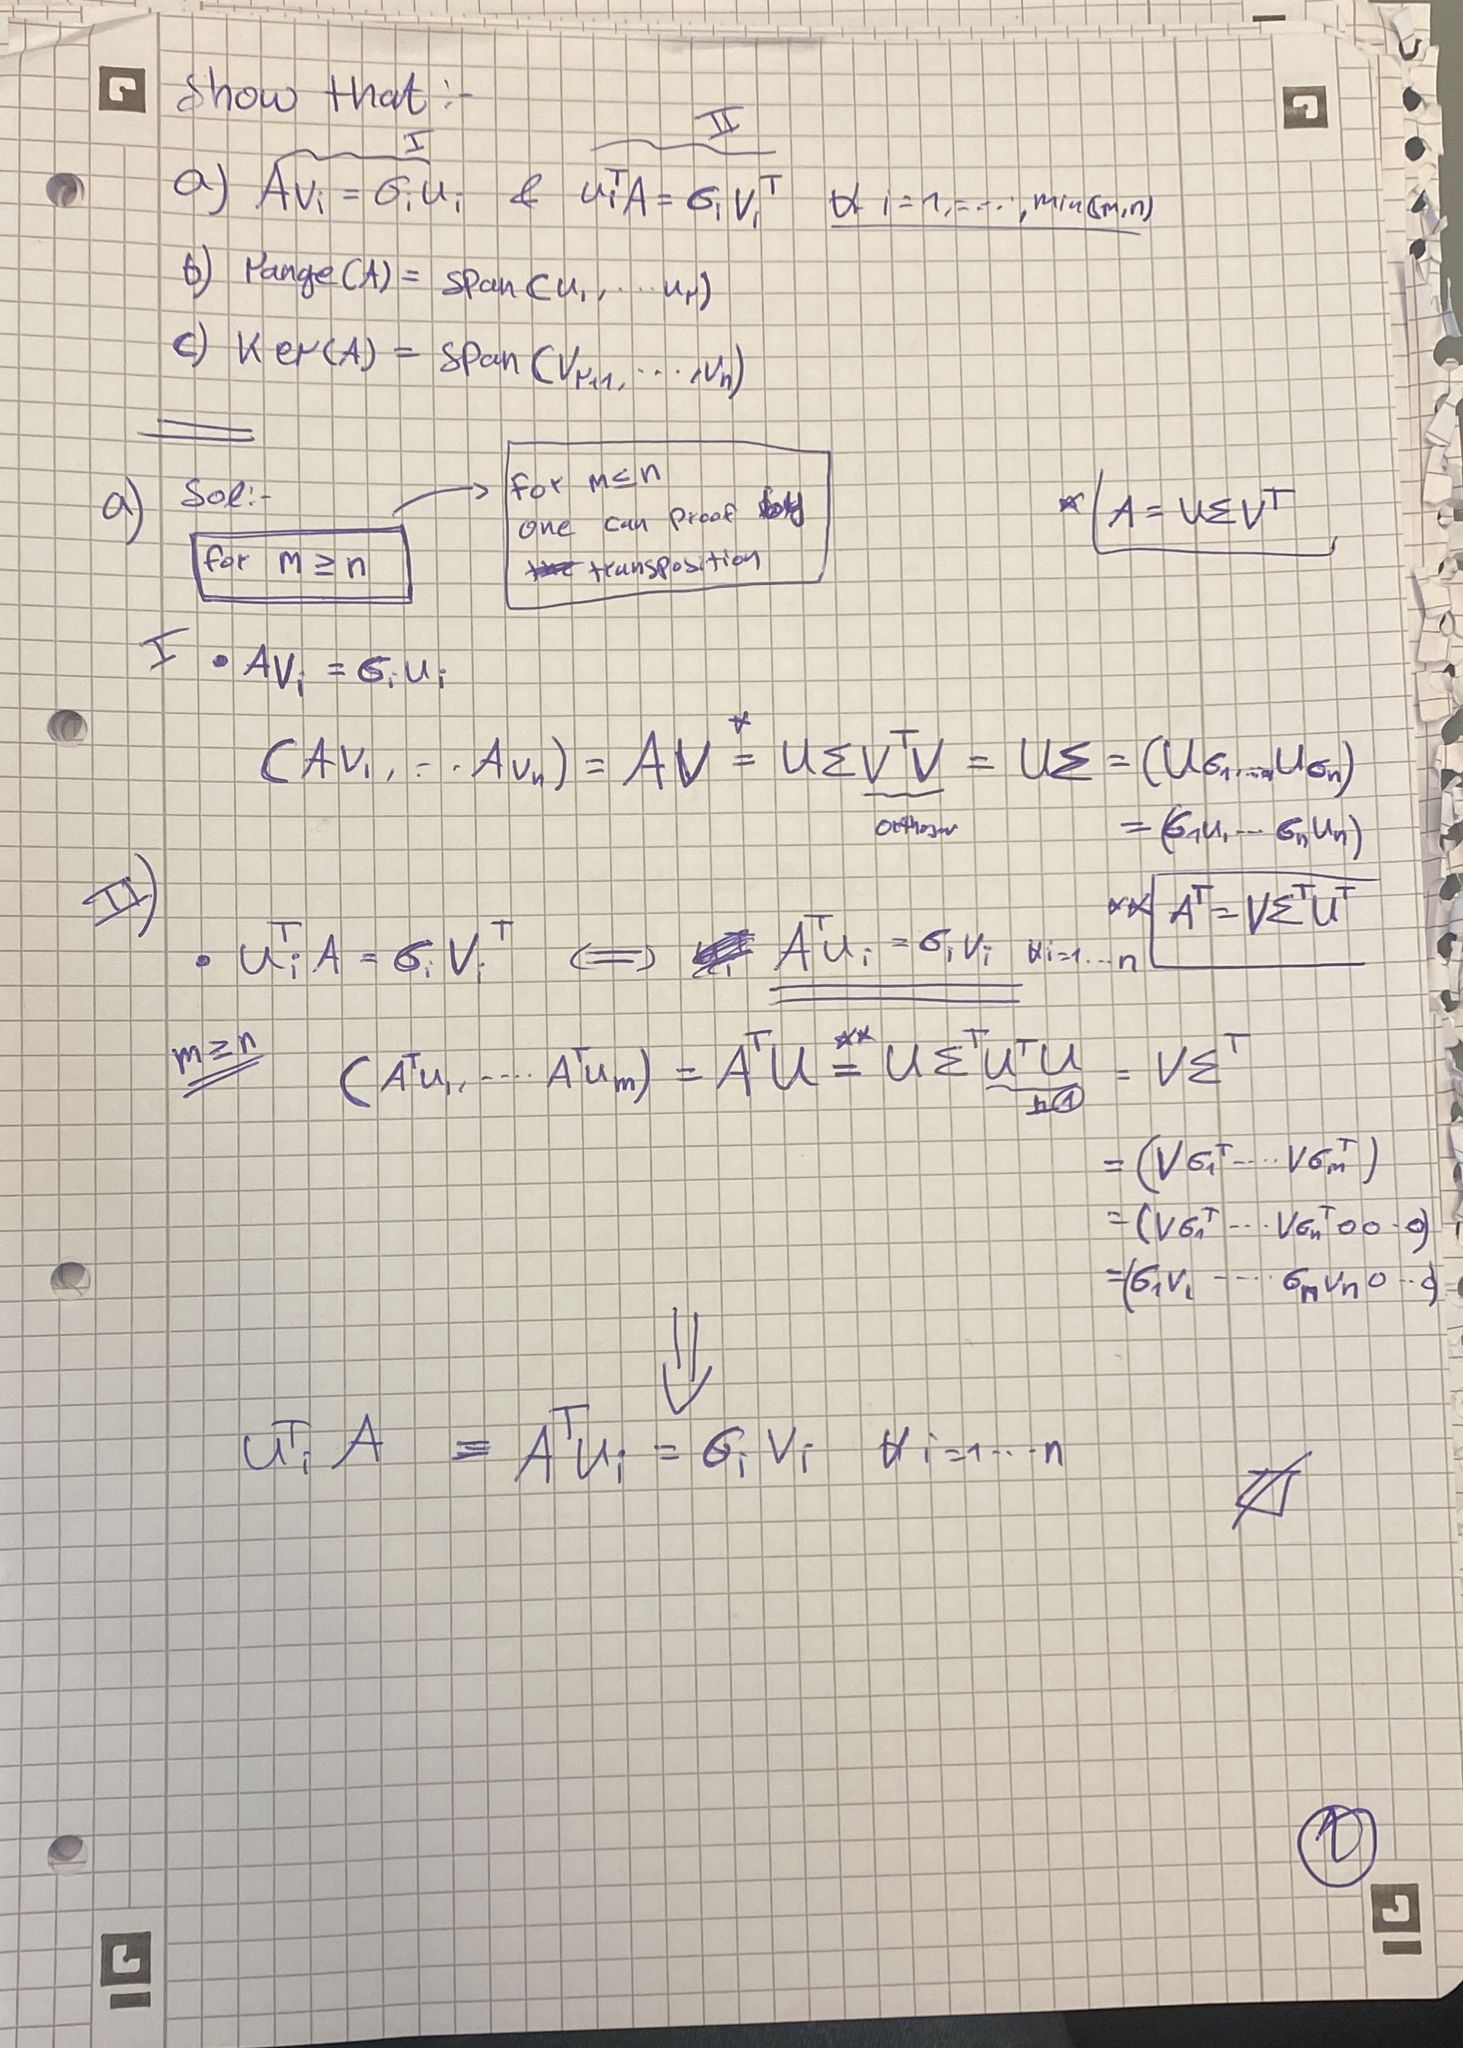 Show that :-
I II
a) Avᵢ = σᵢuᵢ & uᵢᵀA = σᵢvᵢᵀ ∀ i = 1, ..., min(m,n)
b) range(A) = span(u₁, ... uᵣ)
c) Ker(A) = span(vᵣ₊₁, ..., vₙ)
a) Sol:-
for m ≥ n
for m ≤ n
one can proof by
transposition
* A = UΣVᵀ
I • Avᵢ = σᵢuᵢ
(Av₁, ... Avₙ) = AV =* UΣVᵀV = UΣ = (Uσ₁, ..., Uσₙ)
= (σ₁u₁ ... σₙuₙ)
II)
** Aᵀ = VΣᵀUᵀ
• uᵢᵀA = σᵢvᵢᵀ ⟺ Aᵀuᵢ = σᵢvᵢ ∀i=1...n
m ≥ n (Aᵀu₁, .... Aᵀuₘ) = AᵀU =** UΣᵀUᵀU = VΣᵀ
= (Vσ₁ᵀ .... Vσₘᵀ)
= (Vσ₁ᵀ ... Vσₙᵀ 0 0 .. 0)
= (σ₁v₁ .... σₙvₙ 0 .. 0)
⇓
uᵢᵀA = Aᵀuᵢ = σᵢvᵢ ∀ i=1...n
1